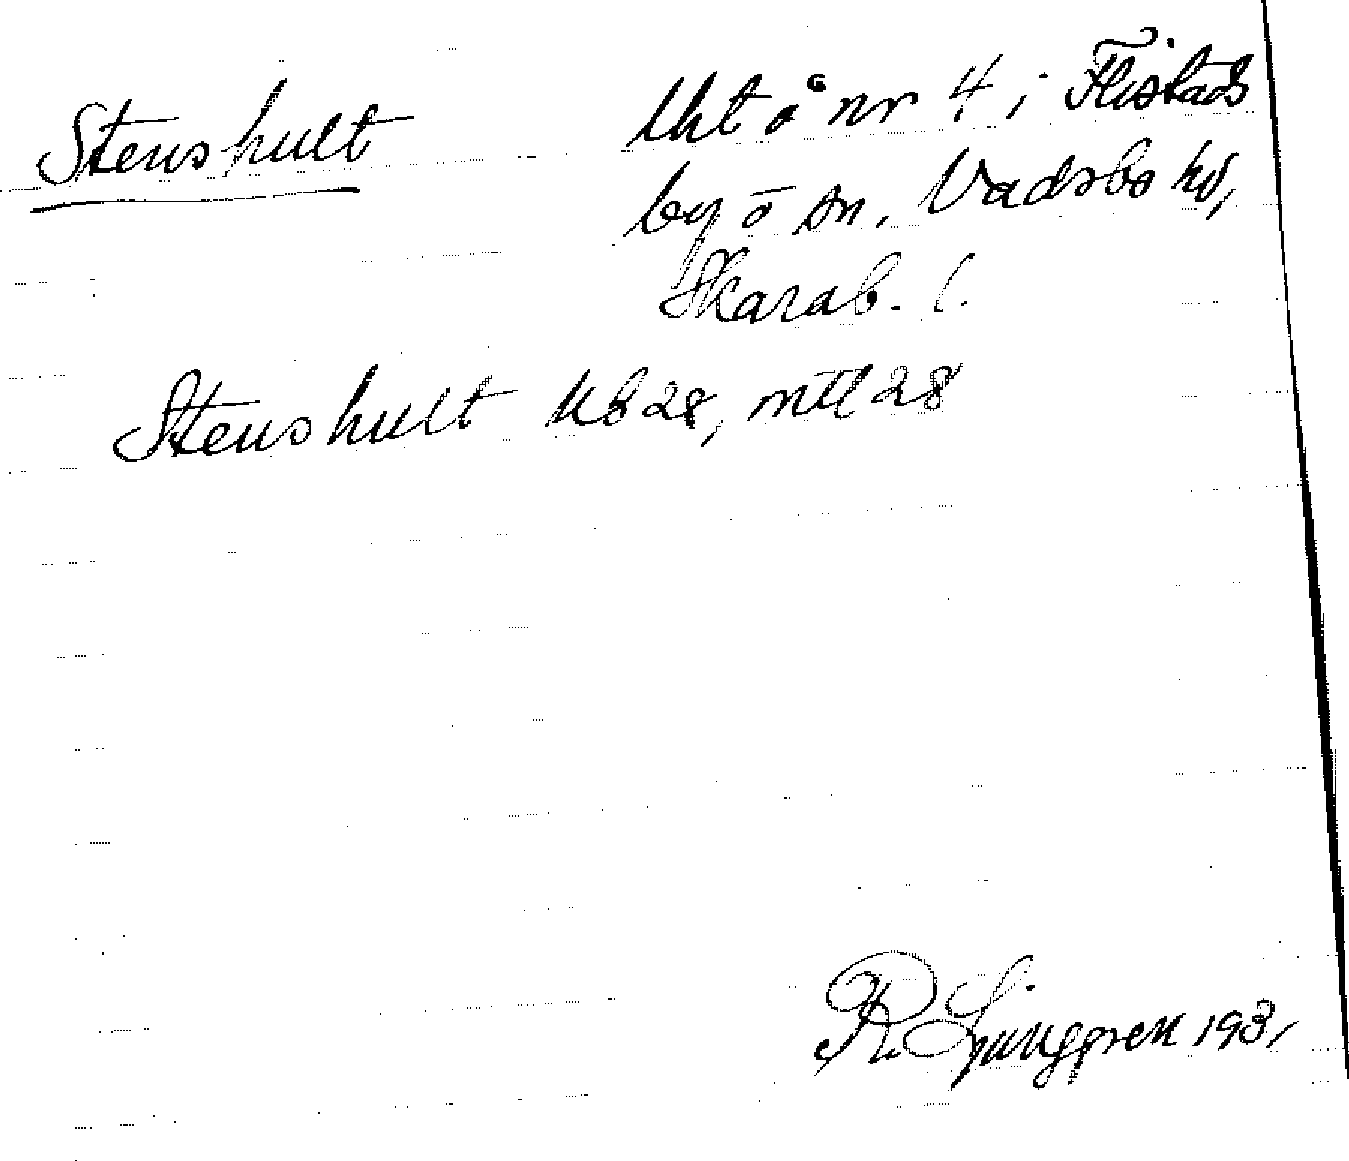 Stenshult
Uht å nr 4 i Flistads
by o sn. Vadsbo hd,
Skarab. l.
Stenshult Kb 28, mtl 28
R. Ljunggren 1931